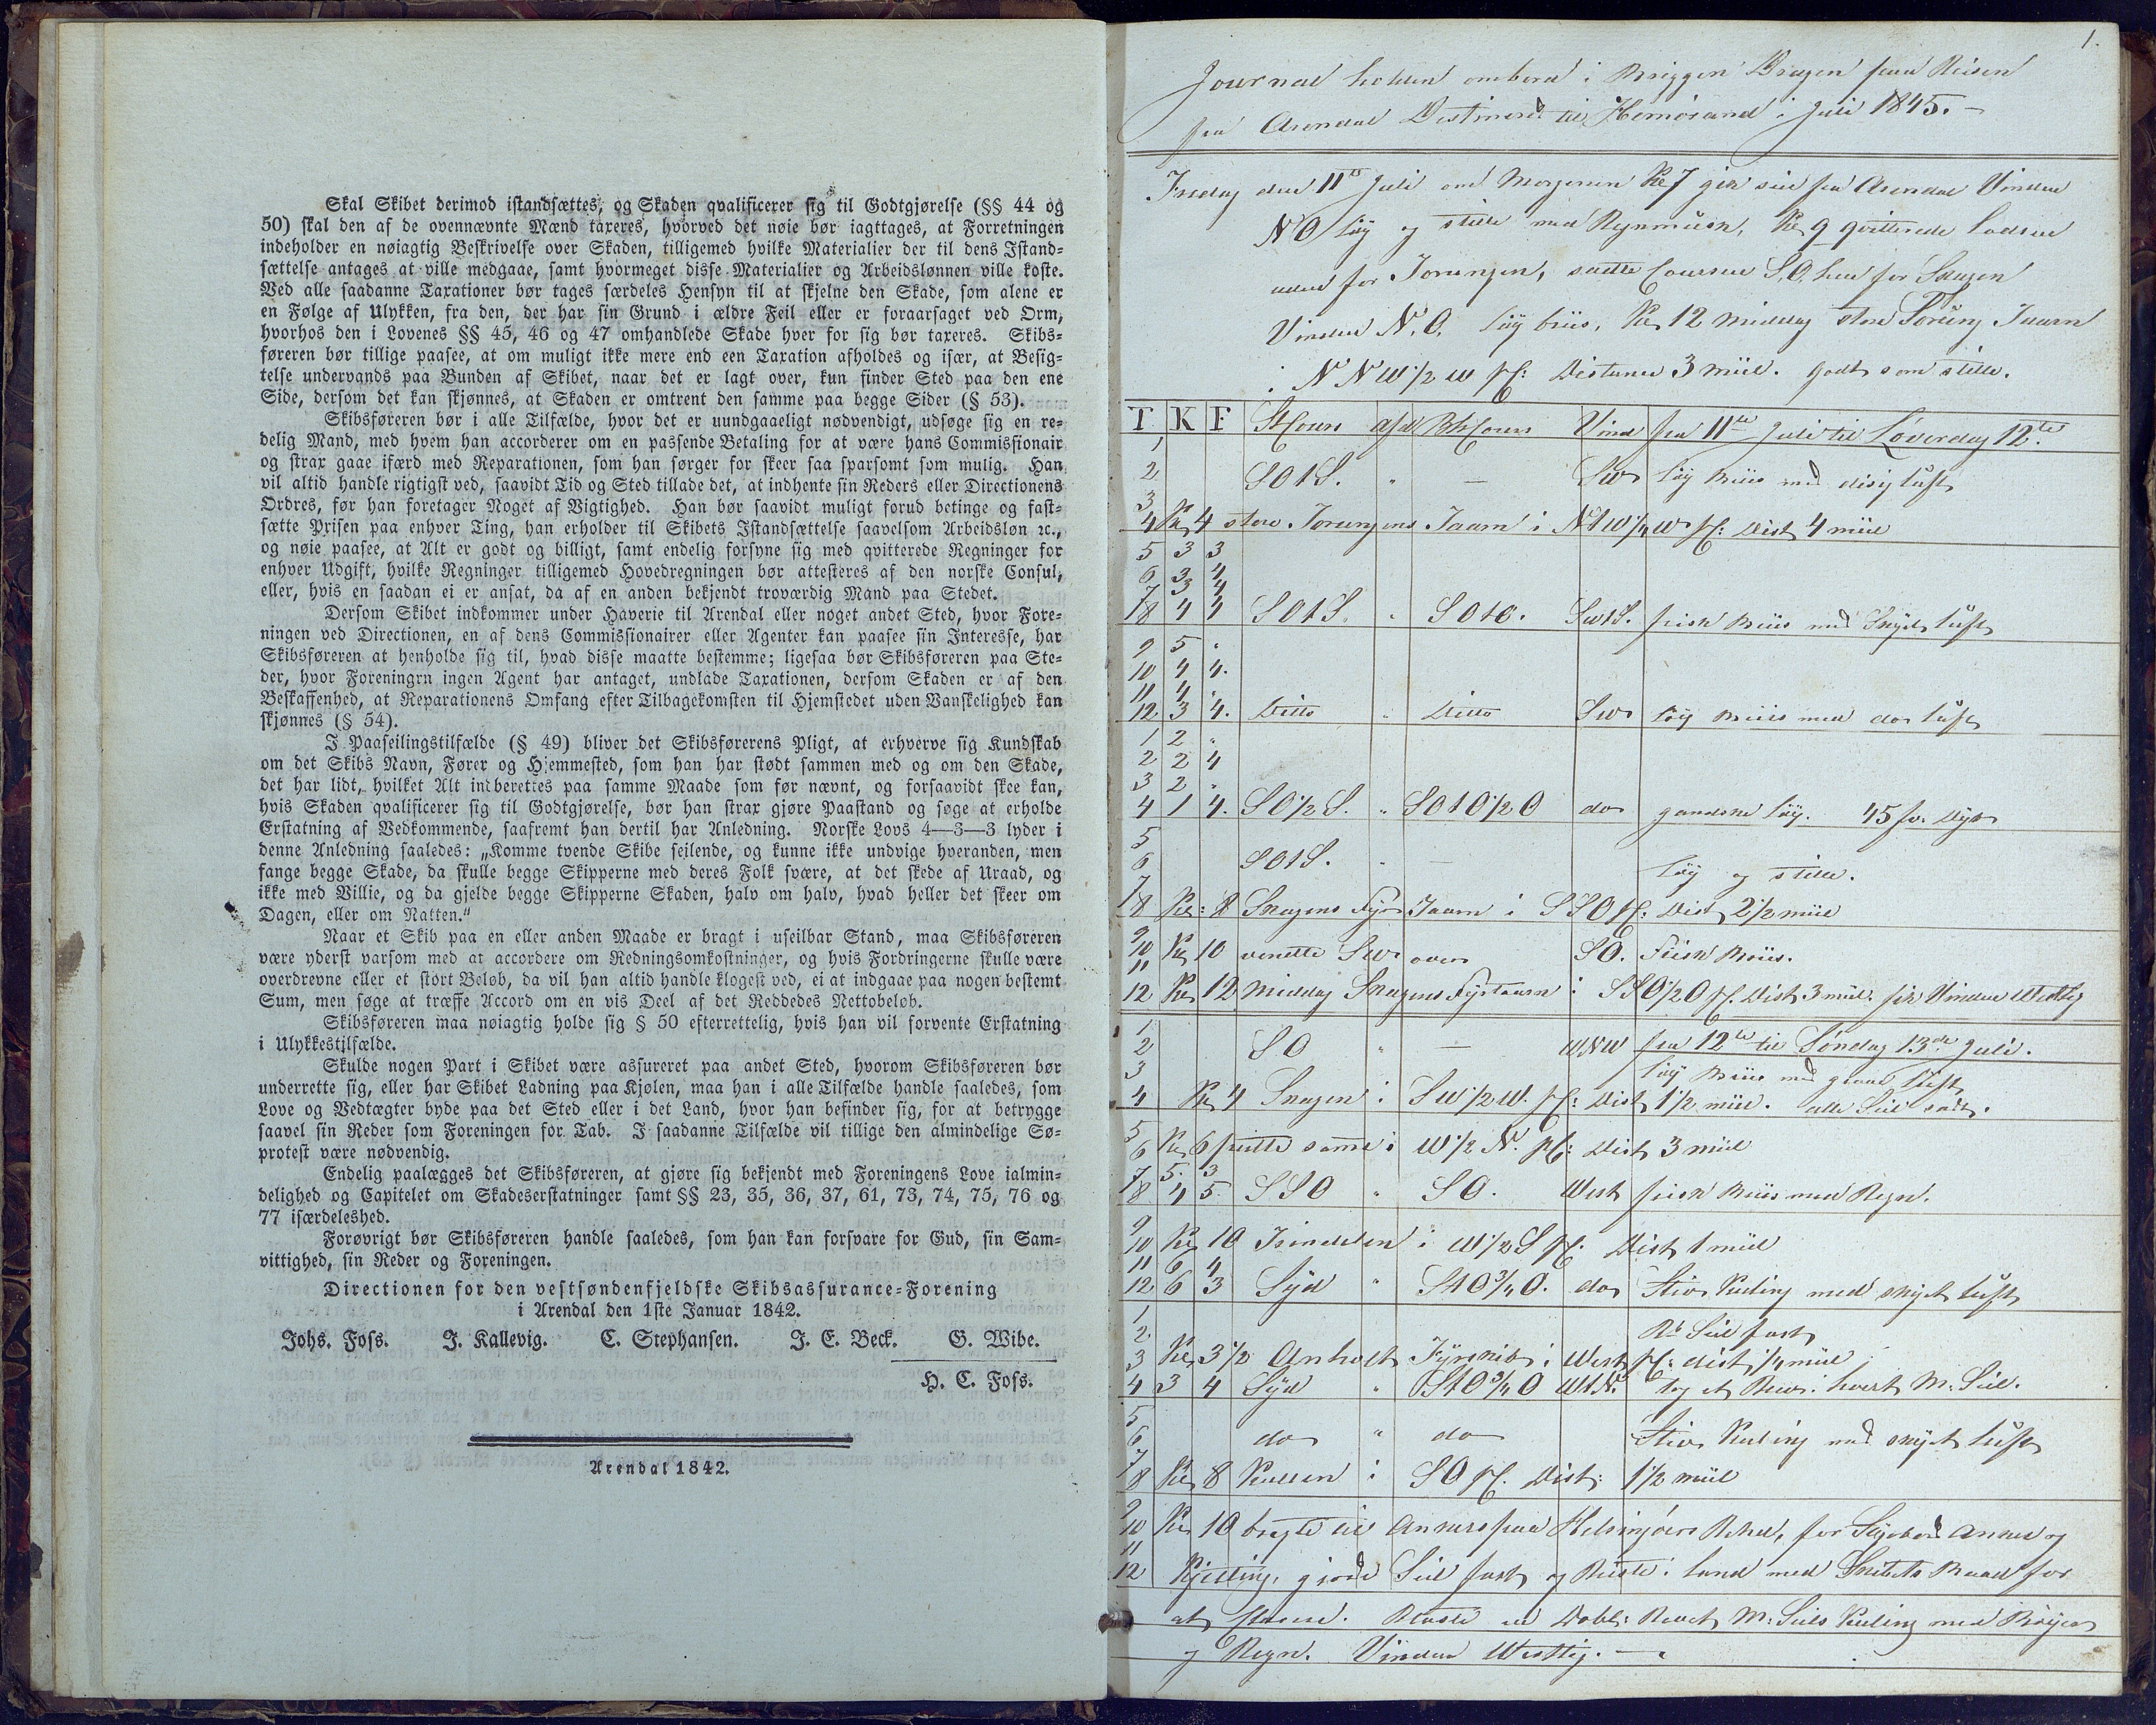 Skal Skibet derimod istandsættes, og Skaden qvalificerer sig til Godtgjørelse (§§ 44 og
50) skal den af de ovennævnte Mænd taxeres, hvorved det nøie bør iagttages, at Forretningen
indeholder en nøiagtig Beskrivelse over Skaden, tilligemed hvilke Materialier der til dens Istand-
sættelse antages at ville medgaae, samt hvormeget disse Materialier og Arbeidslønnen ville koste.
Ved alle saadanne Taxationer bør tages særdeles Hensyn til at skjelne den Skade, som alene er
en Følge af Ulykken, fra den, der har sin Grund i ældre Feil eller er foraarsaget ved Orm,
hvorhos den i Lovenes §§ 45, 46 og 47 omhandlede Skade hver for sig bør taxeres. Skibs-
føreren bør tillige paasee, at om muligt ikke mere end een Taxation afholdes og især, at Besig-
telse undervands paa Bunden af Skibet, naar det er lagt over, kun finder Sted paa den ene
Side, dersom det kan skjønnes, at Skaden er omtrent den samme paa begge Sider (§ 53).
Skibsføreren bør i alle Tilfælde, hvor det er uundgaaeligt nødvendigt, udsøge sig en re-
delig Mand, med hvem han accorderer om en passende Betaling for at være hans Commissionair
og strax gaae ifærd med Reparationen, som han sørger for skeer saa sparsomt som mulig. Han
vil altid handle rigtigst ved, saavidt Tid og Sted tillade det, at indhente sin Reders eller Directionens
Ordres, før han foretager Noget af Vigtighed. Han bør saavidt muligt forud betinge og fast-
sætte Prisen paa enhver Ting, han erholder til Skibets Istandsættelse saavelsom Arbeidsløn ꝛc.,
og nøie paasee, at Alt er godt og billigt, samt endelig forsyne sig med qvitterede Regninger for
enhver Udgift, hvilke Regninger tilligemed Hovedregningen bør attesteres af den norske Consul,
eller, hvis en saadan ei er ansat, da af en anden bekjendt troværdig Mand paa Stedet.
Dersom Skibet indkommer under Haverie til Arendal eller noget andet Sted, hvor Fore-
ningen ved Directionen, en af dens Commissionairer eller Agenter kan paasee sin Interesse, har
Skibsføreren at henholde sig til, hvad disse maatte bestemme; ligesaa bør Skibsføreren paa Ste-
der, hvor Foreningrn ingen Agent har antaget, undlade Taxationen, dersom Skaden er af den
Beskaffenhed, at Reparationens Omfang efter Tilbagekomsten til Hjemstedet uden Vanskelighed kan
skjønnes (§ 54).
I Paaseilingstilfælde (§ 49) bliver det Skibsførerens Pligt, at erhverve sig Kundskab
om det Skibs Navn, Fører og Hjemmested, som han har stødt sammen med og om den Skade,
det har lidt, hvilket Alt indberettes paa samme Maade som før nævnt, og forsaavidt skee kan,
hvis Skaden qvalificerer sig til Godtgjørelse, bør han strax gjøre Paastand og søge at erholde
Erstatning af Vedkommende, saafremt han dertil har Anledning. Norske Lovs 4—3—3 lyder i
denne Anledning saaledes: „Komme tvende Skibe seilende, og kunne ikke undvige hveranden, men
fange begge Skade, da skulle begge Skipperne med deres Folk svære, at det skede af Uraad, og
ikke med Villie, og da gjelde begge Skipperne Skaden, halv om halv, hvad heller det skeer om
Dagen, eller om Natten."
Naar et Skib paa en eller anden Maade er bragt i useilbar Stand, maa Skibsføreren
være yderst varsom med at accordere om Redningsomkostninger, og hvis Fordringerne skulle være
overdrevne eller et stort Beløb, da vil han altid handle klogest ved, ei at indgaae paa nogen bestemt
Sum, men søge at træffe Accord om en vis Deel af det Reddedes Nettobeløb.
Skibsføreren maa nøiagtig holde sig § 50 efterrettelig, hvis han vil forvente Erstatning
i Ulykkestilfælde.
Skulde nogen Part i Skibet være assureret paa andet Sted, hvorom Skibsføreren bør
underrette sig, eller har Skibet Ladning paa Kjølen, maa han i alle Tilfælde handle saaledes, som
Love og Vedtægter byde paa det Sted eller i det Land, hvor han befinder sig, for at betrygge
saavel sin Reder som Foreningen for Tab. I saadanne Tilfælde vil tillige den almindelige Sø-
protest være nødvendig.
Endelig paalægges det Skibsføreren, at gjøre sig bekjendt med Foreningens Love ialmin-
delighed og Capitelet om Skadeserstatninger samt §§ 23, 35, 36, 37, 61, 73, 74, 75, 76 og
77 isærdeleshed.
Forøvrigt bør Skibsføreren handle saaledes, som han kan forsvare for Gud, sin Sam-
vittighed, sin Reder og Foreningen.
Directionen for den vestsøndenfjeldske Skibsassurance-Forening
i Arendal den 1ste Januar 1842.
Johs. Foss. J. Kallevig. C. Stephansen. J. E. Beck. G. Wibe.
H. C. Foss.
Arendal 1842.
1.
Journal holden ombord i Briggen Dragen paa Reisen
fra Arendal Destinered til Hernøsand i Juli 1845.
Fredag den 11te Juli om Morgenen Kl 7 gik seil fra Arendal Vinden
NO løy og stille med Regnmusk, Kl 9 qvitterede Lodsen
uden for Torungen, satte Coursen S.O. hen for Skagen
Vinden N.O. løy briis, Kl 12 middag store Torung Taarn
i NNW 1/2 W p C: Distance 3 miil. godt som stille.
T K F St Cours afd Beh Cours Vind fra 11te Juli til Løverdag 12te
1
2 SO t S. " — SW løy Briis med disig luft
3
4 Kl 4 store Torungens Taarn i NtW 1/4 W p C: Dist 4 miil
5 3 3
6 3 4
7 3 4
8 4 4 SO t S. " SO t O. SW t S. frisk Briis med Skyet luft
9 5 "
10 4 4.
11 4 "
12 3 4. Ditto " Ditto SW løy Briis med do luft
1 2 "
2 2 4
3 2 "
4 1 4. SO 1/2 S. " SO t O 1/2 O do gandske løy. 45 fv. Dyb
5
6 SO t S. " — løy og stille.
7
8 Kl: 8 Skagens Fyr Taarn i SSO p C: Dist 2 1/2 miil
9
10 Kl 10 vendte SW over SO. Frisk Briis.
11
12 Kl 12 Middag Skagens Fyrtaarn i SSO 1/2 O p C. Dist 3 miil. fik Vinden Westlig
1 fra 12te til Søndag 13de Juli.
2 SO " — WNW
3 løy Briis med graae luft
4 Kl 4 Skagen i SW 1/2 W. p C: Dist 1 1/2 miil. alle Seil satt.
5
6 Kl 6 peilte samme i W 1/2 N. p C: Dist 3 miil
7 5. 3
8 4 5. SSO " SO. West frisk Briis med Regn.
9
10 Kl 10 Trindelen i W 1/2 S p C. Dist 1 miil
11 6 4
12 6 3 Syd " St O 3/4 O. do Stiv Kuling med skyet luft
1
2 Seil fast
3 Kl 3 1/2 Anholt Fyrskib i West p C: dist 1/4 miil
4 3 4 Syd " St O 3/4 O W t N. tog et Rev i hvert M. Seil.
5
6 do " do Stiv Kuling med skyet luft
7
8 Kl 8 Kullen i SO p C. Dist: 1 1/2 miil
9
10 Kl 10 bragte til Ankers paa Helsingøers Rehd, for Anker og
11
12 Kjetting, giorde Seil fast og Reiste i land med Skibets Baad for
at Revet M: Seils Kuling med Bøyer
og Regn. Vinden Westlig.